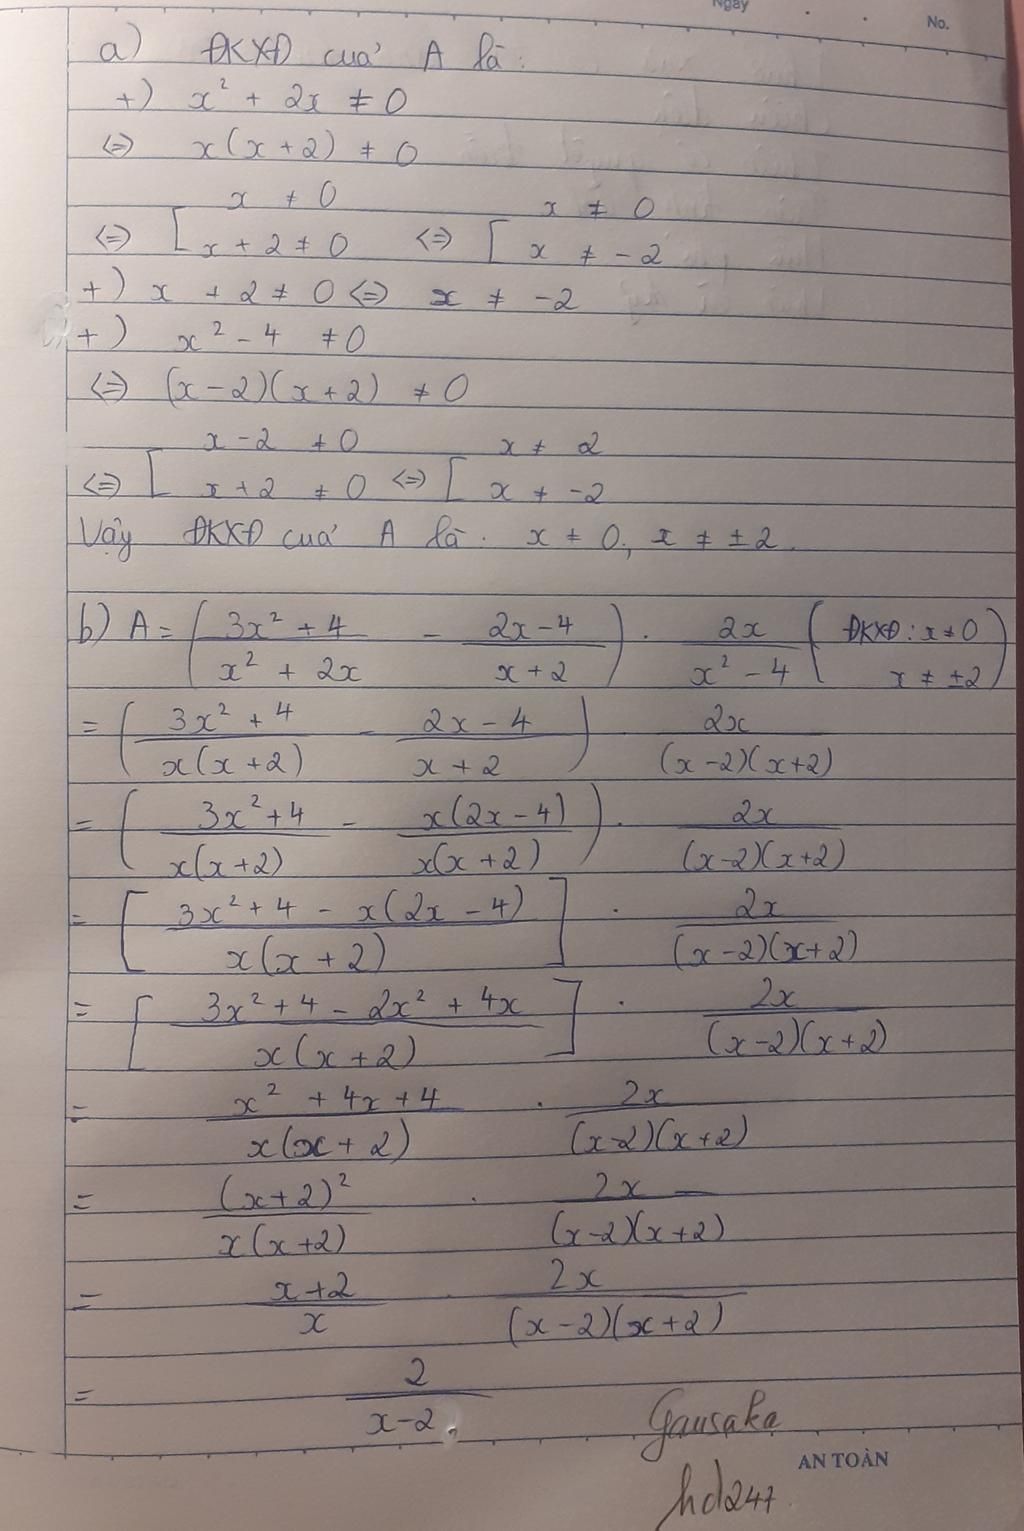 Ngày . .
No.
a) ĐKXĐ của A là:
+) x² + 2x ≠ 0
<=> x(x + 2) ≠ 0
<=> [ x ≠ 0 <=> [ x ≠ 0
x + 2 ≠ 0 x ≠ -2
+) x + 2 ≠ 0 <=> x ≠ -2
+) x² - 4 ≠ 0
<=> (x - 2)(x + 2) ≠ 0
<=> [ x - 2 ≠ 0 <=> [ x ≠ 2
x + 2 ≠ 0 x ≠ -2
Vậy ĐKXĐ của A là: x ≠ 0; x ≠ ±2.
b) A = ( (3x² + 4)/(x² + 2x) - (2x - 4)/(x + 2) ) . 2x/(x² - 4) ( ĐKXĐ: x ≠ 0 x ≠ ±2 )
= ( (3x² + 4)/(x(x + 2)) - (2x - 4)/(x + 2) ) . 2x/((x - 2)(x + 2))
= ( (3x² + 4)/(x(x + 2)) - x(2x - 4)/(x(x + 2)) ) . 2x/((x - 2)(x + 2))
= [ (3x² + 4 - x(2x - 4))/(x(x + 2)) ] . 2x/((x - 2)(x + 2))
= [ (3x² + 4 - 2x² + 4x)/(x(x + 2)) ] . 2x/((x - 2)(x + 2))
= (x² + 4x + 4)/(x(x + 2)) . 2x/((x - 2)(x + 2))
= (x + 2)²/(x(x + 2)) . 2x/((x - 2)(x + 2))
= (x + 2)/x . 2x/((x - 2)(x + 2))
= 2/(x - 2).
Gausaka
hd247.
AN TOÀN